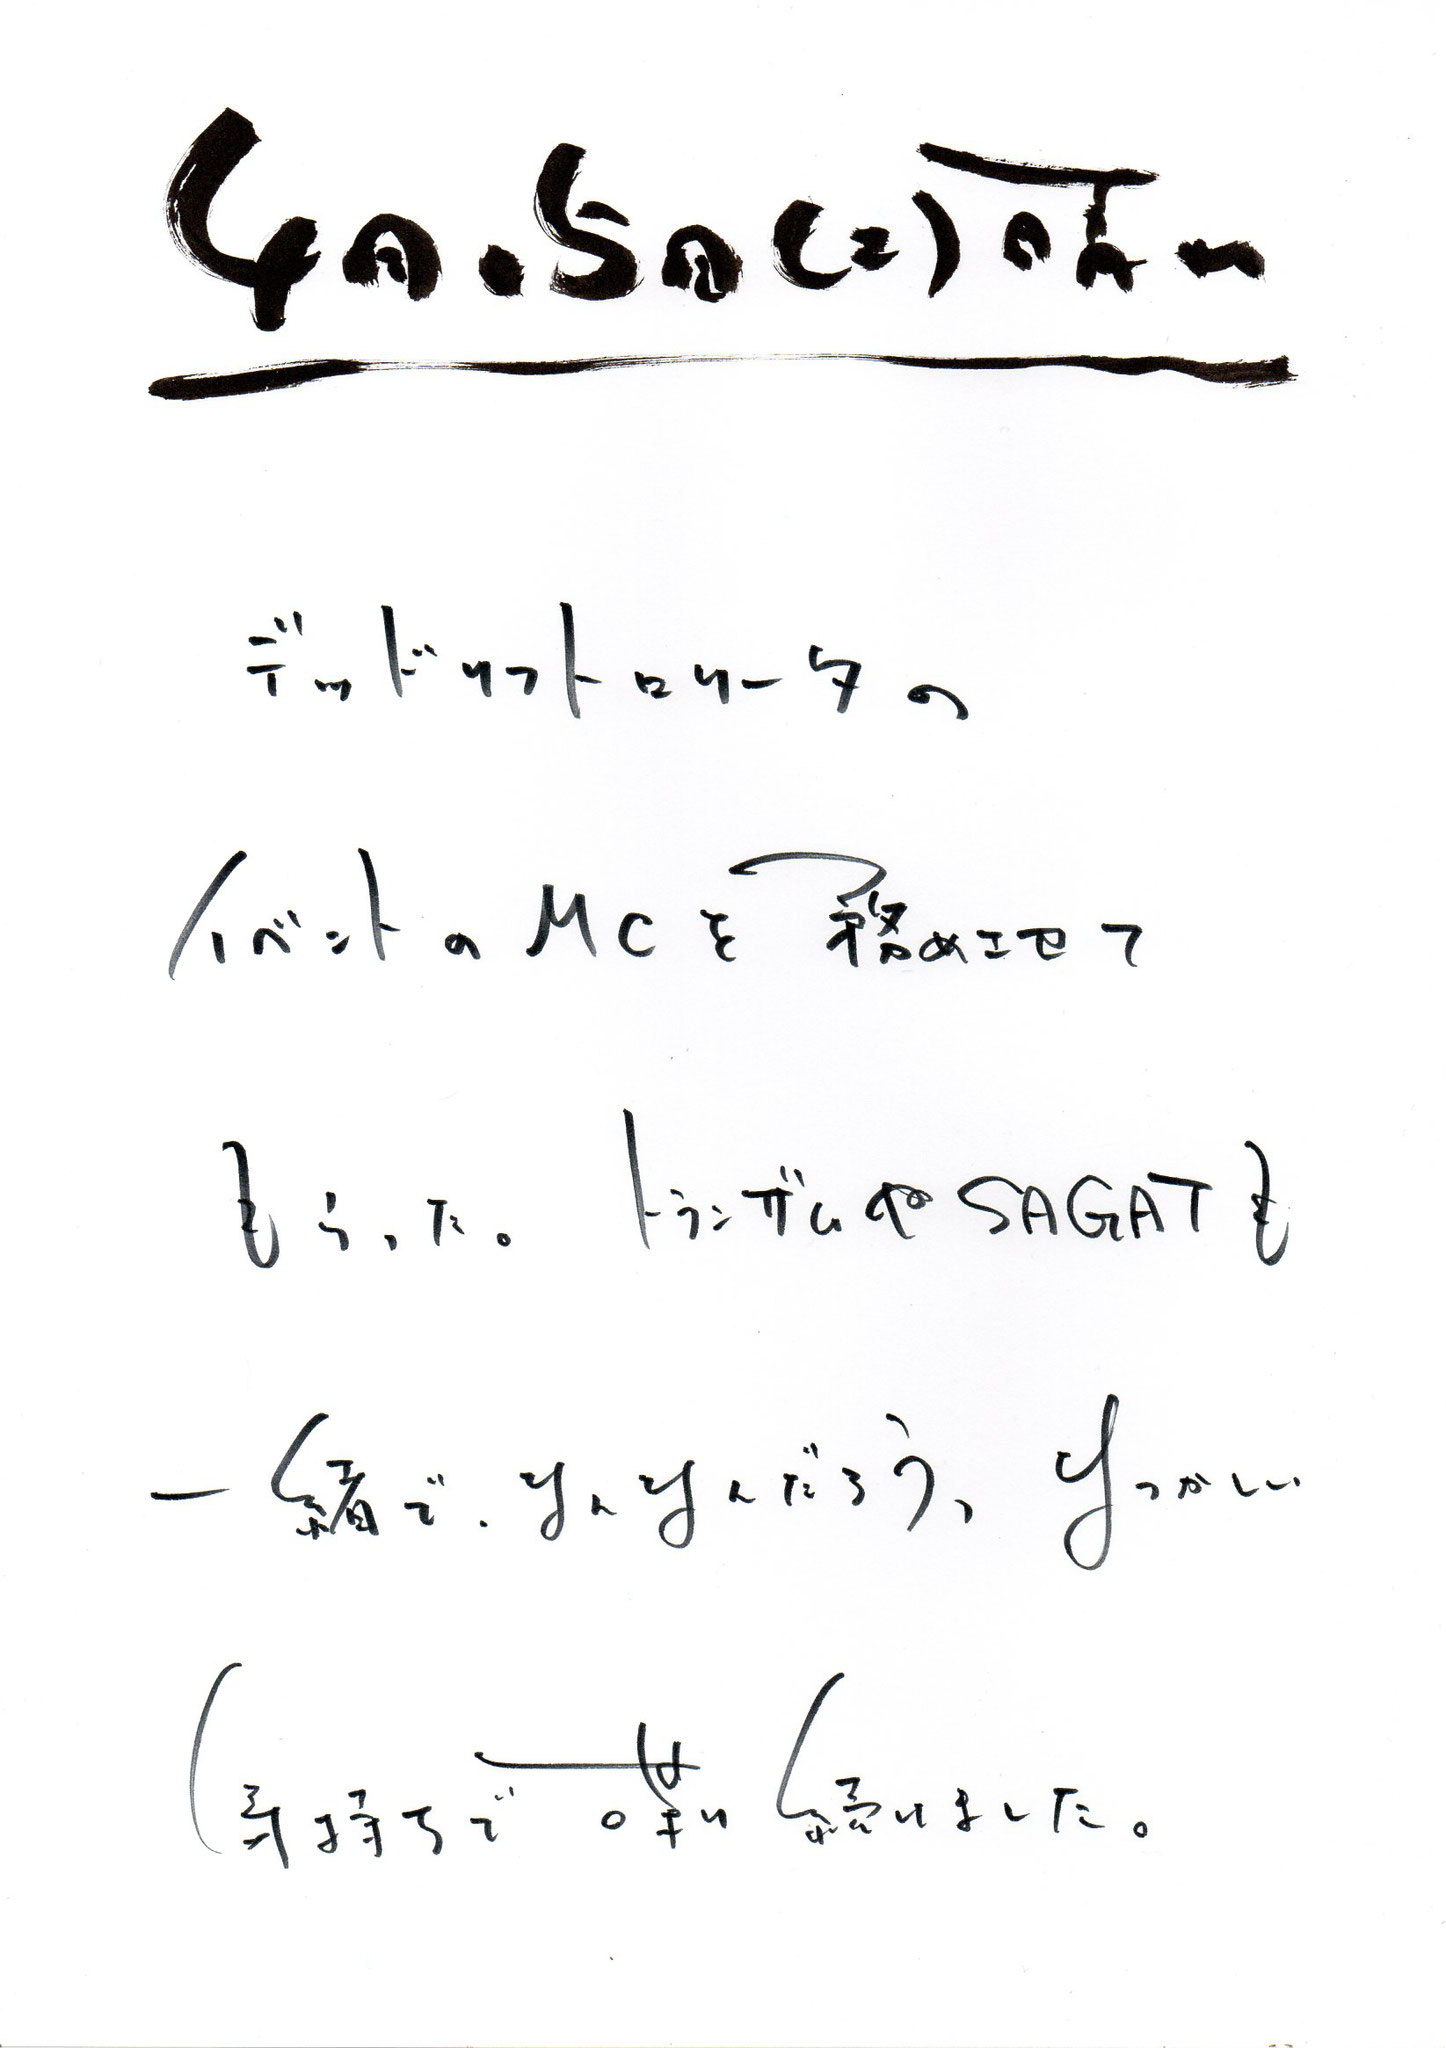 デッドリフトロリータの
イベントのMCを務めさせて
もらった。トランザムやSAGATも
一緒で、なんなんだろう、なつかしい
気持ちで喋り続けました。